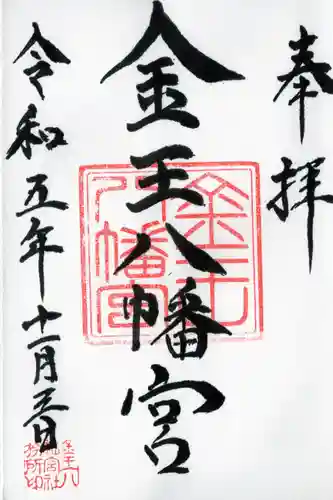 奉拝
金王八幡宮
令和五年十一月三日
金王八幡宮
金王八
幡宮社
務所印